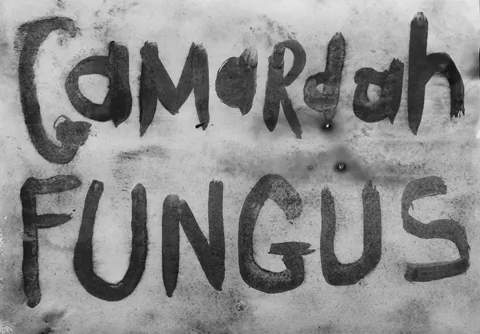 GaMaRdah
FUNGUS